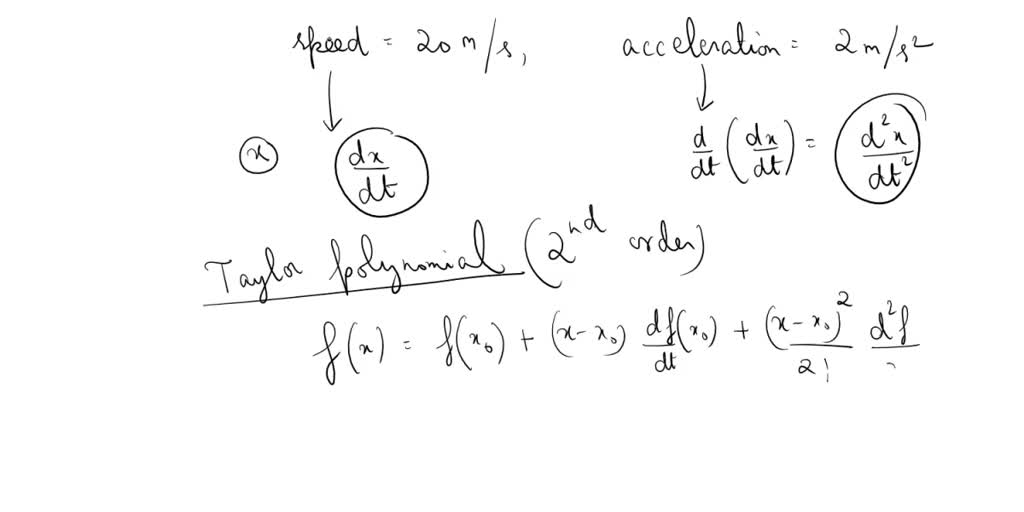 speed = 20 m/s, acceleration = 2 m/s²
x dx/dt d/dt (dx/dt) = d²x/dt²
Taylor polynomial (2nd order)
f(x) = f(x₀) + (x - x₀) df/dt (x₀) + (x - x₀)²/2! d²f